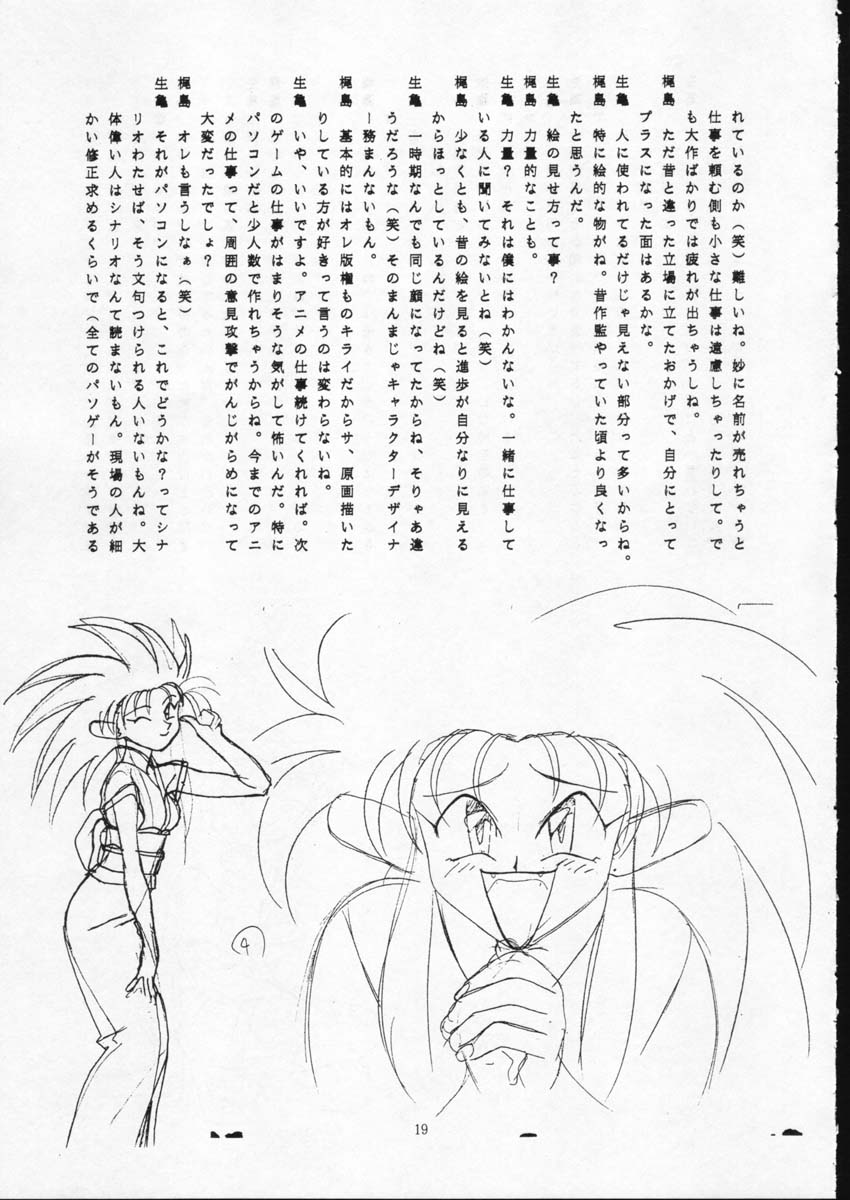 れているのか（笑）難しいね。妙に名前が売れちゃうと
仕事を頼む側も小さな仕事は遠慮しちゃったりして。で
も大作ばかりでは疲れが出ちゃうしね。
梶島　ただ昔と違った立場に立てたおかげで、自分にとって
プラスになった面はあるかな。
生亀　人に使われてるだけじゃ見えない部分って多いからね。
梶島　特に絵的な物がね。昔作監やっていた頃より良くなっ
たと思うんだ。
生亀　絵の見せ方って事？
梶島　力量的なことも。
生亀　力量？　それは僕にはわかんないな。一緒に仕事して
いる人に聞いてみないとね（笑）
梶島　少なくとも、昔の絵を見ると進歩が自分なりに見える
からほっとしているんだけどね（笑）
生亀　一時期なんでも同じ顔になってたからね、そりゃあ違
うだろうな（笑）そのまんまじゃキャラクターデザイナ
ー務まんないもん。
梶島　基本的にはオレ版権ものキライだからサ、原画描いた
りしている方が好きって言うのは変わらないね。
生亀　いや、いいですよ。アニメの仕事続けてくれれば。次
のゲームの仕事がはまりそうな気がして怖いんだ。特に
パソコンだと少人数で作れちゃうからね。今までのアニ
メの仕事って、周囲の意見攻撃でがんじがらめになって
大変だったでしょ？
梶島　オレも言うしなぁ（笑）
生亀　それがパソコンになると、これでどうかな？ってシナ
リオわたせば、そう文句つけられる人いないもんね。大
体偉い人はシナリオなんて読まないもん。現場の人が細
かい修正求めるくらいで（全てのパソゲーがそうである
4
19